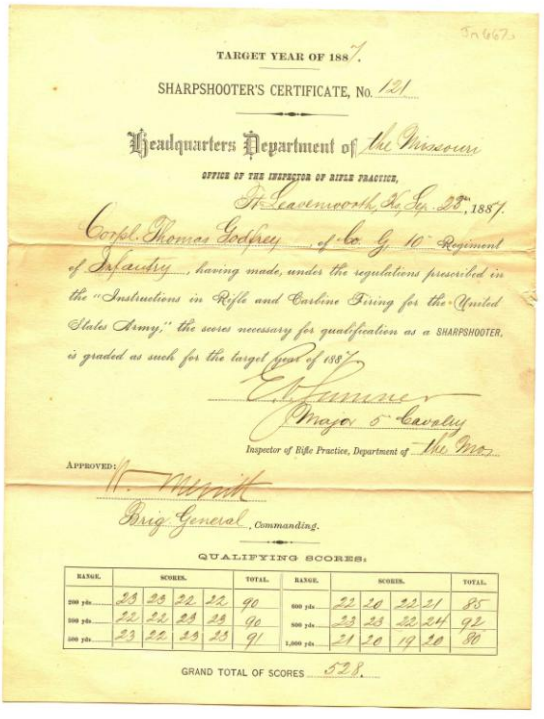 Jn 667
TARGET YEAR OF 1887.
SHARPSHOOTER'S CERTIFICATE, No. 121
Headquarters Department of the Missouri
OFFICE OF THE INSPECTOR OF RIFLE PRACTICE,
Ft. Leavenworth, Ks, Sep. 25th, 1887.
Corpl. Thomas Godfrey, of Co. G 10th Regiment
of Infantry, having made, under the regulations prescribed in
the "Instructions in Rifle and Carbine Firing for the United
States Army," the scores necessary for qualification as a SHARPSHOOTER,
is graded as such for the target year of 1887
E. V. Sumner
Major 5 Cavalry
Inspector of Rifle Practice, Department of the Mo.
APPROVED:
W. Merritt
Brig. General, Commanding.
QUALIFYING SCORES:
RANGE. SCORES. TOTAL. RANGE. SCORES. TOTAL.
200 yds. 23 23 22 22 90 600 yds. 22 20 22 21 85
300 yds. 22 22 23 23 90 800 yds. 23 23 22 24 92
500 yds. 23 22 23 23 91 1,000 yds. 21 20 19 20 80
GRAND TOTAL OF SCORES 528.